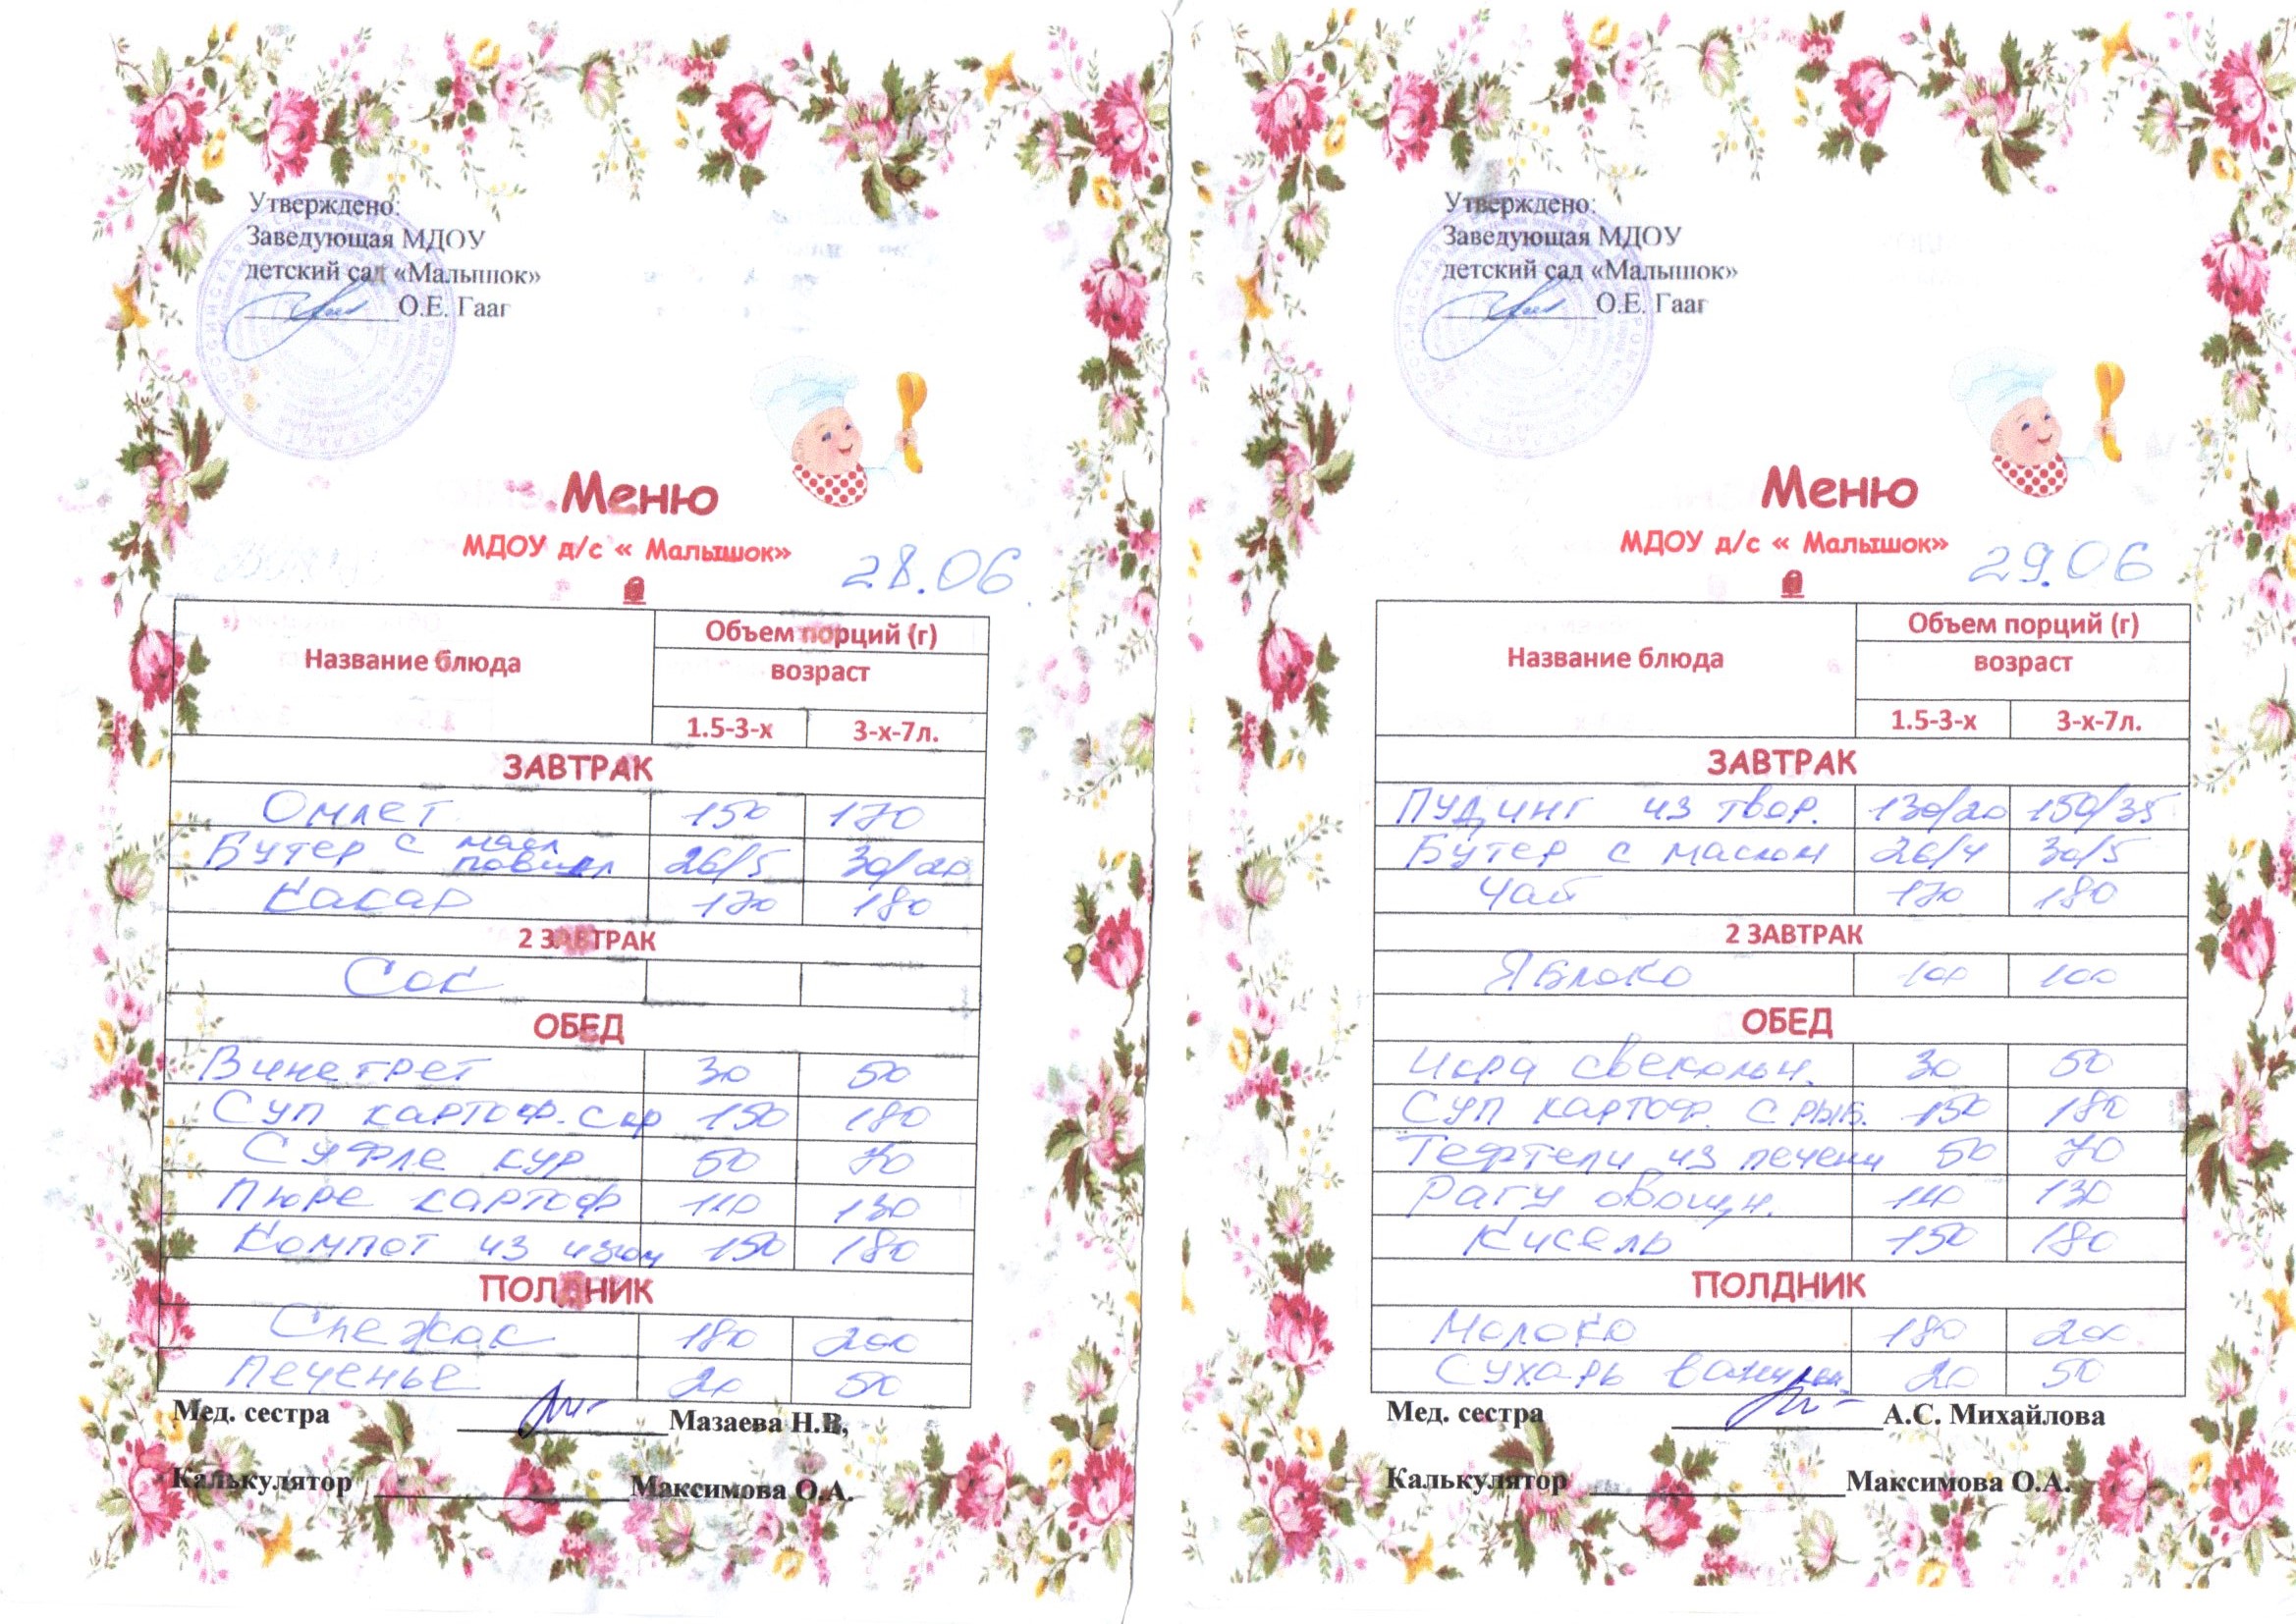 Утверждено:
Заведующая МДОУ
детский сад «Малышок»
О.Е. Гааг
Меню
МДОУ д/с « Малышок»
28.06
Название блюда
Объем порций (г)
возраст
1.5-3-х 3-х-7л.
ЗАВТРАК
Омлет 150 170
Бутер с масл повидл 26/5 30/20
Какао 170 180
2 ЗАВТРАК
Сок
ОБЕД
Винегрет 30 50
Суп картоф. 150 180
Суфле кур 50 70
Пюре картоф 110 130
Компот из изюм 150 180
ПОЛДНИК
Снежок 180 200
Печенье 20 50
Мед. сестра Мазаева Н.В,
Калькулятор Максимова О.А.
Утверждено:
Заведующая МДОУ
детский сад «Малышок»
О.Е. Гааг
Меню
МДОУ д/с « Малышок»
29.06
Название блюда
Объем порций (г)
возраст
1.5-3-х 3-х-7л.
ЗАВТРАК
Пудинг из твор. 130/20 150/35
Бутер с маслом 26/4 30/5
Чай 170 180
2 ЗАВТРАК
Яблоко 100 100
ОБЕД
Икра свекольн. 30 50
Суп картоф. с рыб. 150 180
Тефтели из печени 50 70
Рагу овощн. 110 130
Кисель 150 180
ПОЛДНИК
Молоко 180 200
Сухарь ванил. 20 50
Мед. сестра А.С. Михайлова
Калькулятор Максимова О.А.